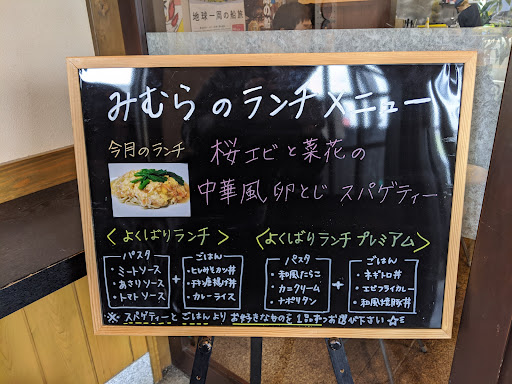 地球一周の船旅
みむらのランチメニュー
今月のランチ
桜エビと菜花の
中華風卵とじスパゲティー
<よくばりランチ>
パスタ
・ミートソース
・あさりソース
・トマトソース
+
ごはん
・ヒレみそカツ丼
・チキン唐揚げ丼
・カレーライス
<よくばりランチプレミアム>
パスタ
・和風たらこ
・カニクリーム
・ナポリタン
+
ごはん
・ネギトロ丼
・エビフライカレー
・和風豚丼
※スパゲティーとごはんよりお好きなものを1品ずつお選び下さい☆